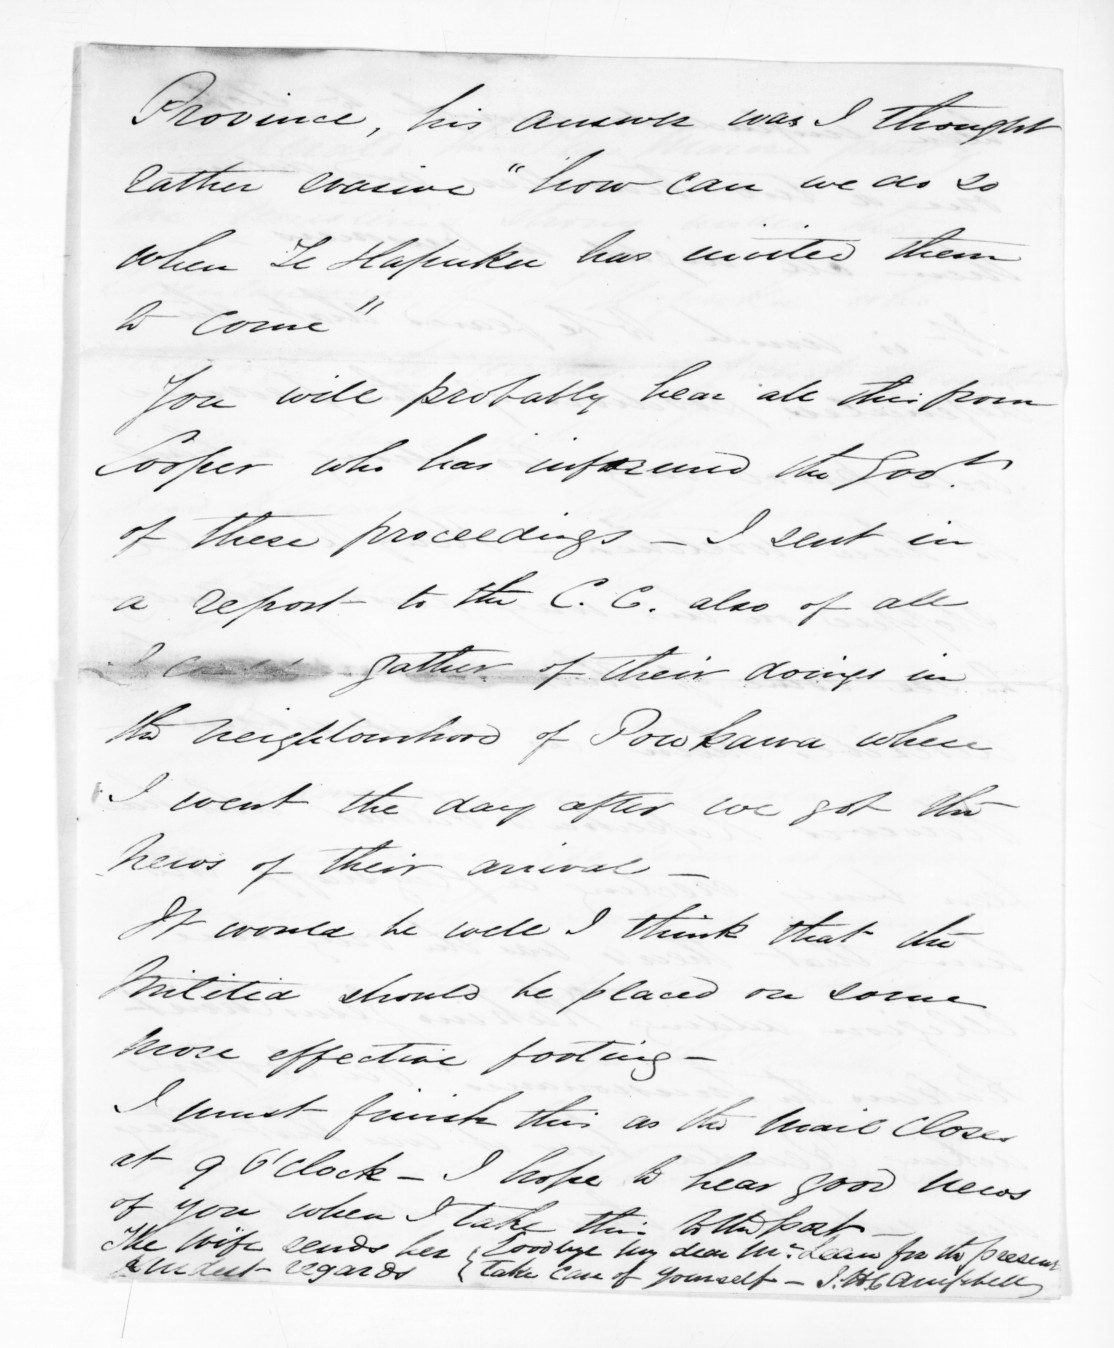 Province, his answer was I thought
rather evasive "how can we do so
when Te Hapuku has invited them
to come"
You will probably hear all this from
Cooper who has informed the Govt.
of these proceedings - I sent in
a report to the C. C. also of all
I could gather of their doings in
the neighbourhood of Poukawa where
I went the day after we got the
news of their arrival -
It would be well I think that the
Militia should be placed on some
more effective footing -
I must finish this as the mail closes
at 9 O'clock - I hope to hear good news
of you when I take this to the post -
The Wife sends her { Goodbye my dear McLean for the present
kindest regards { take care of yourself - J. H. Campbell